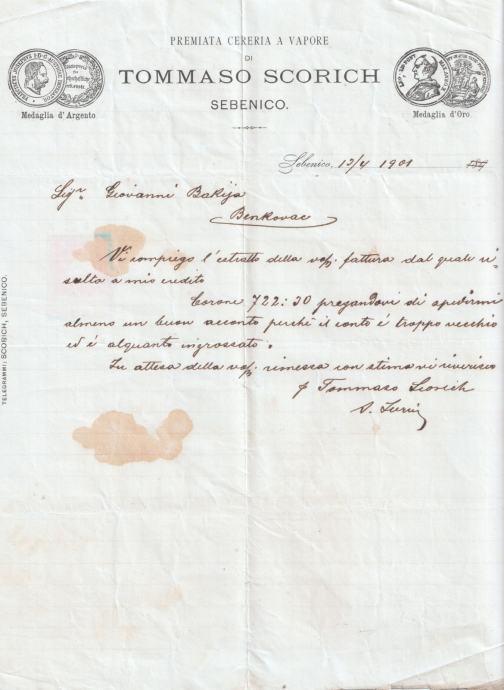 PREMIATA CERERIA A VAPORE
DI
TOMMASO SCORICH
SEBENICO.
Medaglia d'Argento
Medaglia d'Oro
Sebenico, 13/4 1901
Sigr. Giovanni Bakija
Benkovac
Vi compiego l'estratto della vos. fattura dal quale ri
sulta a mio credito
Corone 722:30 pregandovi di spedirmi
almeno un buon acconto perchè il conto é troppo vecchio
ed é alquanto ingrossato.
In attesa della vos. rimessa con stima vi riverisco
p Tommaso Scorich
TELEGRAMMI: SCORICH, SEBENICO.